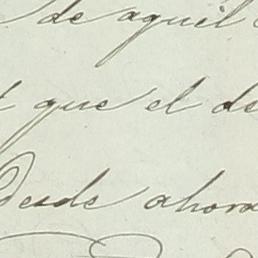 de aquel
que el de
desde ahora